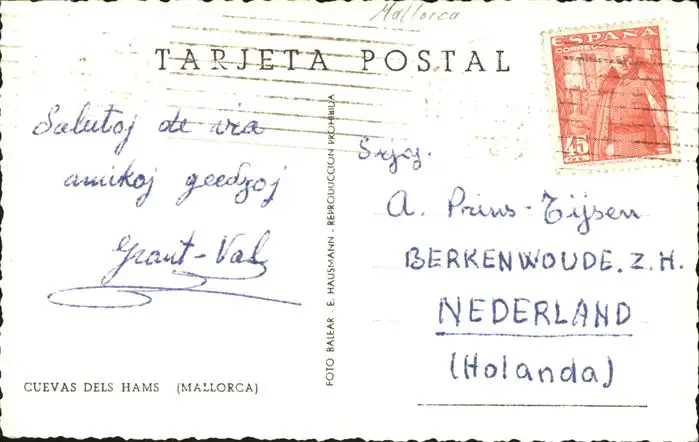 Mallorca
TARJETA POSTAL
ESPAÑA
CORREOS
45
CTS
Salutoj de via
amikoj geedzoj
Grant-Val
Srjoj.
A. Prins-Tijsen
BERKENWOUDE. Z. H.
NEDERLAND
(Holanda)
FOTO BALEAR - E. HAUSMANN - REPRODUCCION PROHIBIDA
CUEVAS DELS HAMS (MALLORCA)